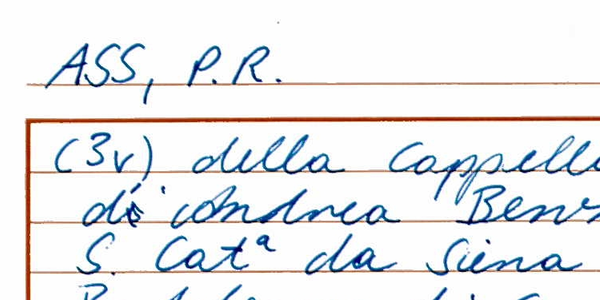 ASS, P.R.
(3v) della Cappell
di Andrea Ben
S. Catª da Siena